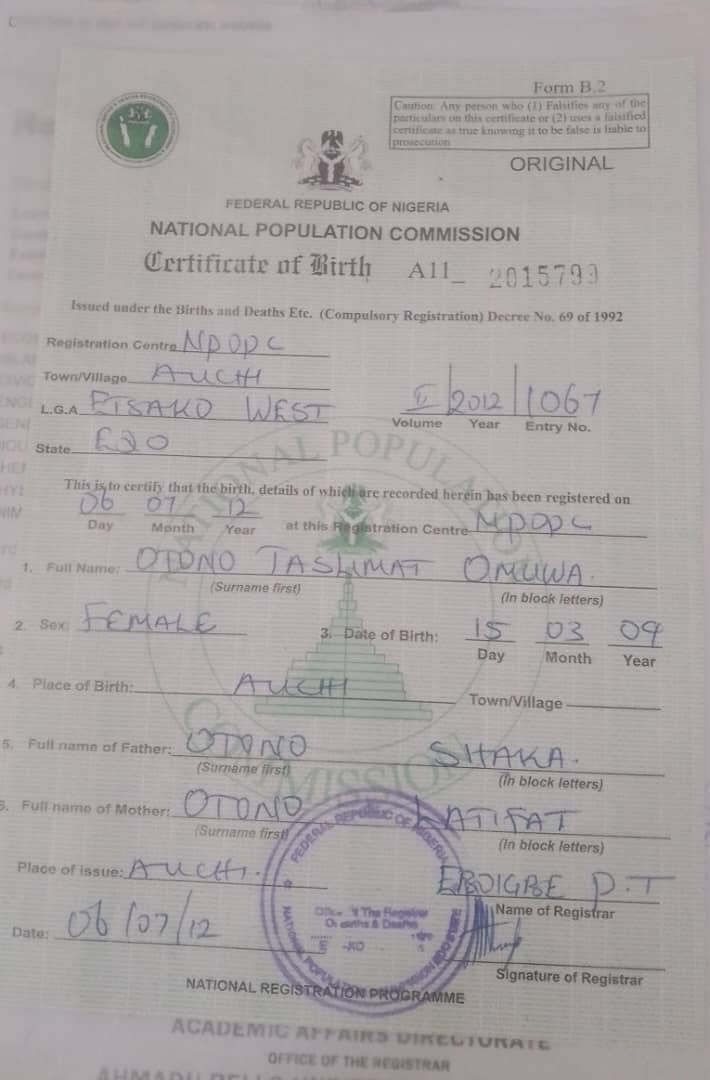 Form B.2
Caution: Any person who (1) Falsifies any of the
particulars on this certificate or (2) uses a falsified
certificate as true knowing it to be false is liable to
prosecution
ORIGINAL
FEDERAL REPUBLIC OF NIGERIA
NATIONAL POPULATION COMMISSION
Certificate of Birth A11_ 2015799
Issued under the Births and Deaths Etc. (Compulsory Registration) Decree No. 69 of 1992
Registration Centre NPOPC
Town/Village AUCHI
L.G.A ETSAKO WEST
II 2012 1067
Volume Year Entry No.
State EDO
NATIONAL POPULATION COMMISSION
This is to certify that the birth, details of which are recorded herein has been registered on
06 07 12
Day Month Year at this Registration Centre NPOPC
1. Full Name: OTONO TASLIMAT OMUWA.
(Surname first) (In block letters)
2. Sex: FEMALE 3. Date of Birth: 15 03 09
Day Month Year
4. Place of Birth: AUCHI Town/Village
5. Full name of Father: OTONO SHAKA.
(Surname first) (In block letters)
6. Full name of Mother: OTONO LATIFAT
(Surname first) (In block letters)
Place of issue: AUCHI. EBOIGBE P.T
Name of Registrar
Date: 06/07/12
Signature of Registrar
FEDERAL REPUBLIC OF NIGERIA
Office Of The Registrar
Of Births & Deaths
NATIONAL REGISTRATION PROGRAMME
ACADEMIC AFFAIRS DIRECTORATE
OFFICE OF THE REGISTRAR